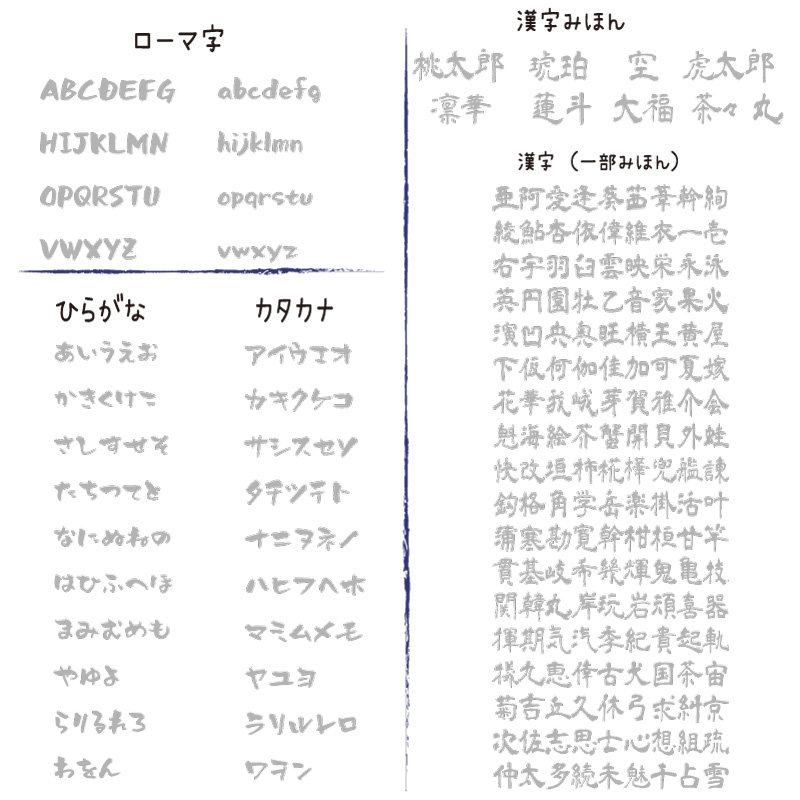 ローマ字
ABCDEFG abcdefg
HIJKLMN hijklmn
OPQRSTU opqrstu
VWXYZ vwxyz
ひらがな
あいうえお
かきくけこ
さしすせそ
たちつてと
なにぬねの
はひふへほ
まみむめも
やゆよ
らりるれろ
わをん
カタカナ
アイウエオ
カキクケコ
サシスセソ
タチツテト
ナニヌネノ
ハヒフヘホ
マミムメモ
ヤユヨ
ラリルレロ
ワヲン
漢字みほん
桃太郎 琥珀 空 虎太郎
凛華 蓮斗 大福 茶々丸
漢字（一部みほん）
亜阿愛逢葵茜葦幹絢
綾鮎杏依偉維衣一壱
右宇羽臼雲映栄永泳
英円園牡乙音家果火
濱凹央奥旺横王黄屋
下仮何伽佳加可夏嫁
花華我峨芽賀雅介会
魁海絵芥蟹開貝外蛙
快改垣柿椛樺兜艦諌
鈎格角学岳楽掛活叶
蒲寒勘寛幹柑桓甘竿
貫基岐希輝鬼亀技
関韓丸岸玩岩頑喜器
揮期気汽季紀貴起軌
久恵倖古犬国茶宙
菊吉丘久休弓求糾京
次佐志思士心想組疏
仲太多続未魅千占雪